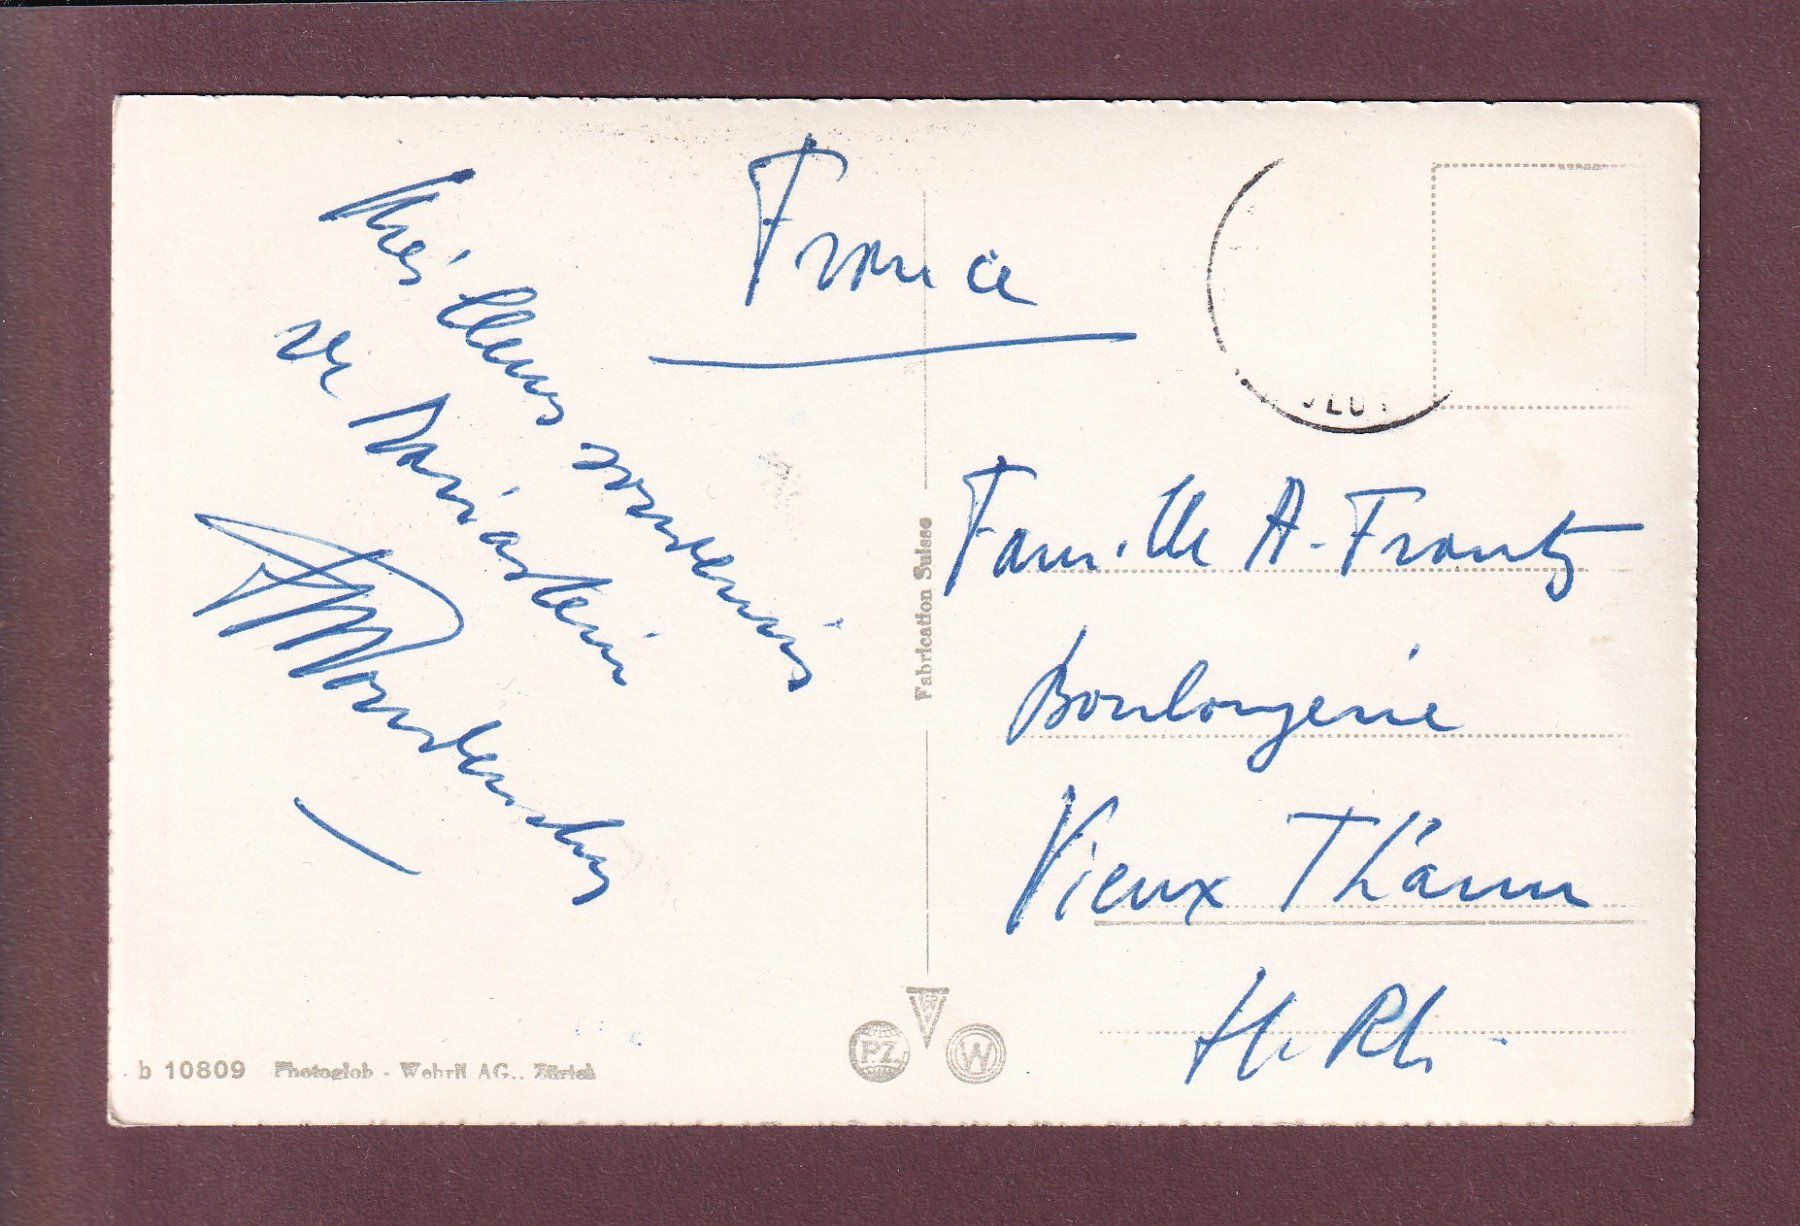 France
Meilleurs souvenirs
de Mariastein
Famille A. Frantz
Boulangerie
Vieux Thann
Ht Rh.
Fabrication Suisse
PZ
W
b 10809 Photoglob - Wehrli AG., Zürich